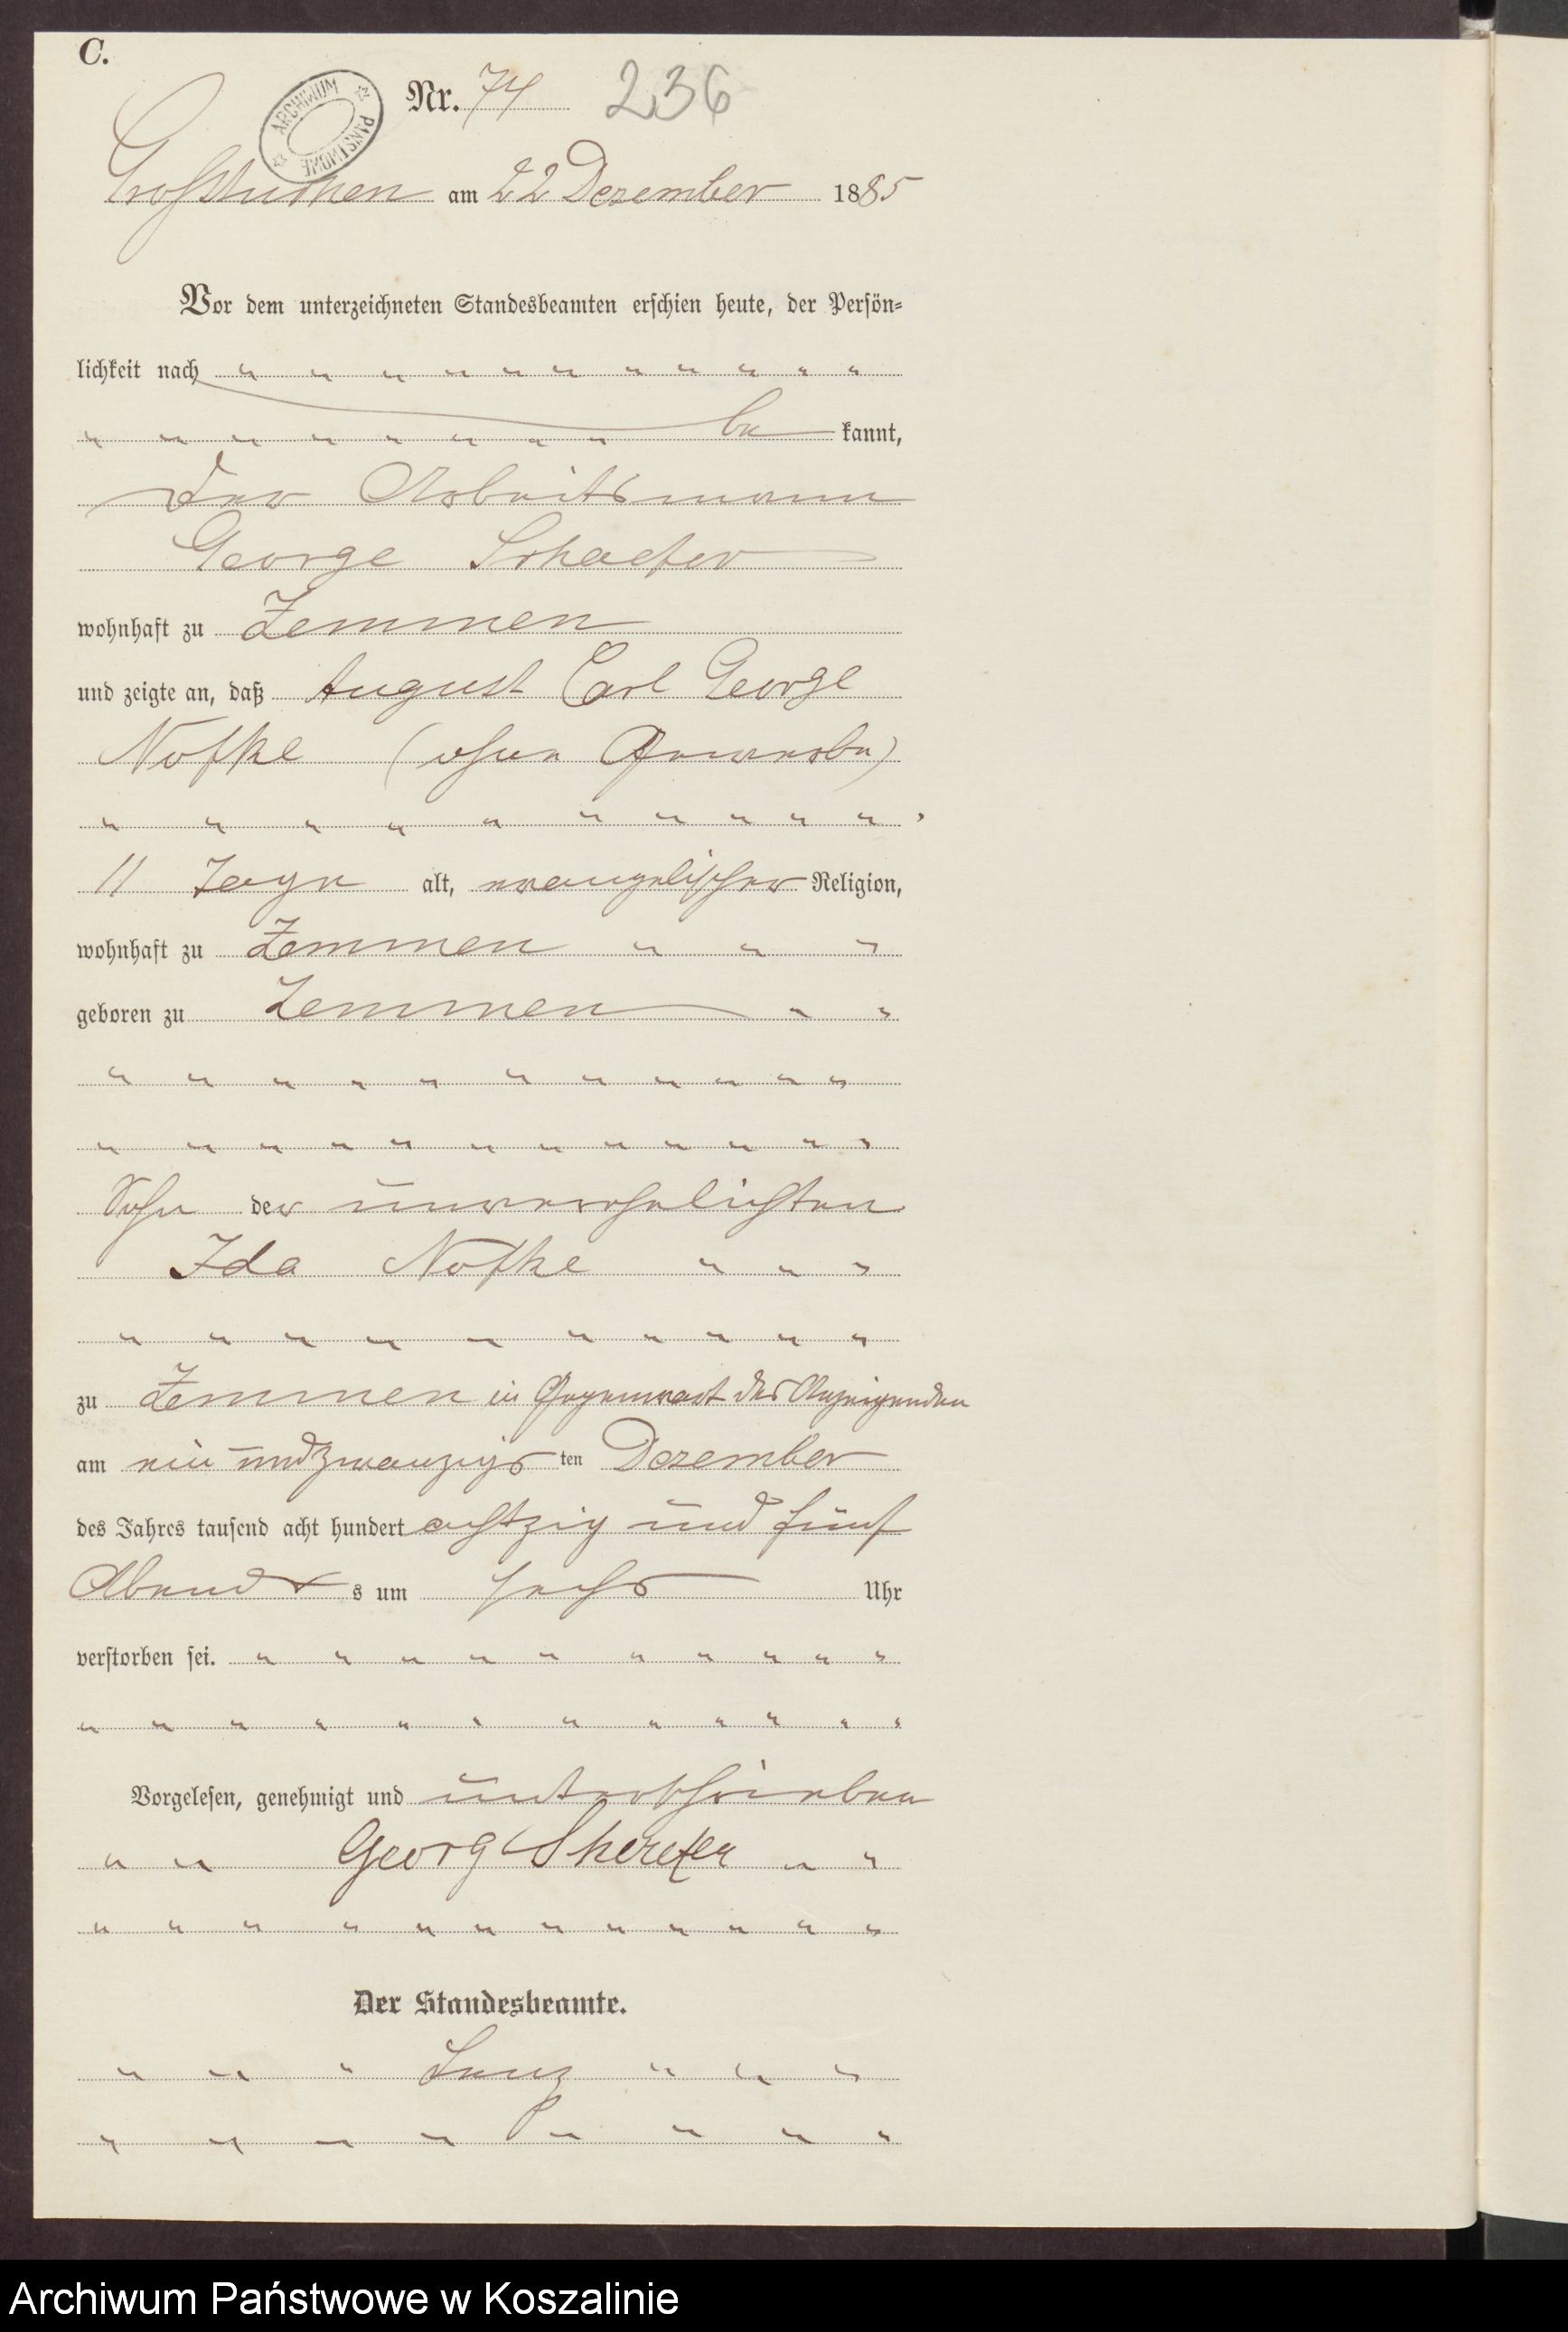 C.
ARCHIWUM PAŃSTWOWE
Nr. 74 236
Großtuchen am 22 Dezember 1885
Vor dem unterzeichneten Standesbeamten erschien heute, der Persön-
lichkeit nach " " " " " " " " " " "
" " " " " " " " be kannt,
der Arbeitsmann
George Schaefer
wohnhaft zu Zemmen
und zeigte an, daß August Carl George
Nofke (ohne Gewerbe)
" " " " " " " " " " ,
11 Tage alt, evangelischer Religion,
wohnhaft zu Zemmen " " "
geboren zu Zemmen " "
" " " " " " " " " " "
" " " " " " " " " " " "
Sohn der unverehelichten
Ida Nofke " " "
" " " " " " " " " "
zu Zemmen in Gegenwart des Anzeigenden
am ein und zwanzigs ten Dezember
des Jahres tausend acht hundert achtzig und fünf
Abend s um sechs Uhr
verstorben sei. " " " " " " " " " "
" " " " " " " " " " " "
Vorgelesen, genehmigt und unterschrieben
" " Georg " "
" " " " " " " " " " " "
Der Standesbeamte.
" " " " " "
" " " " " " " "
Archiwum Państwowe w Koszalinie